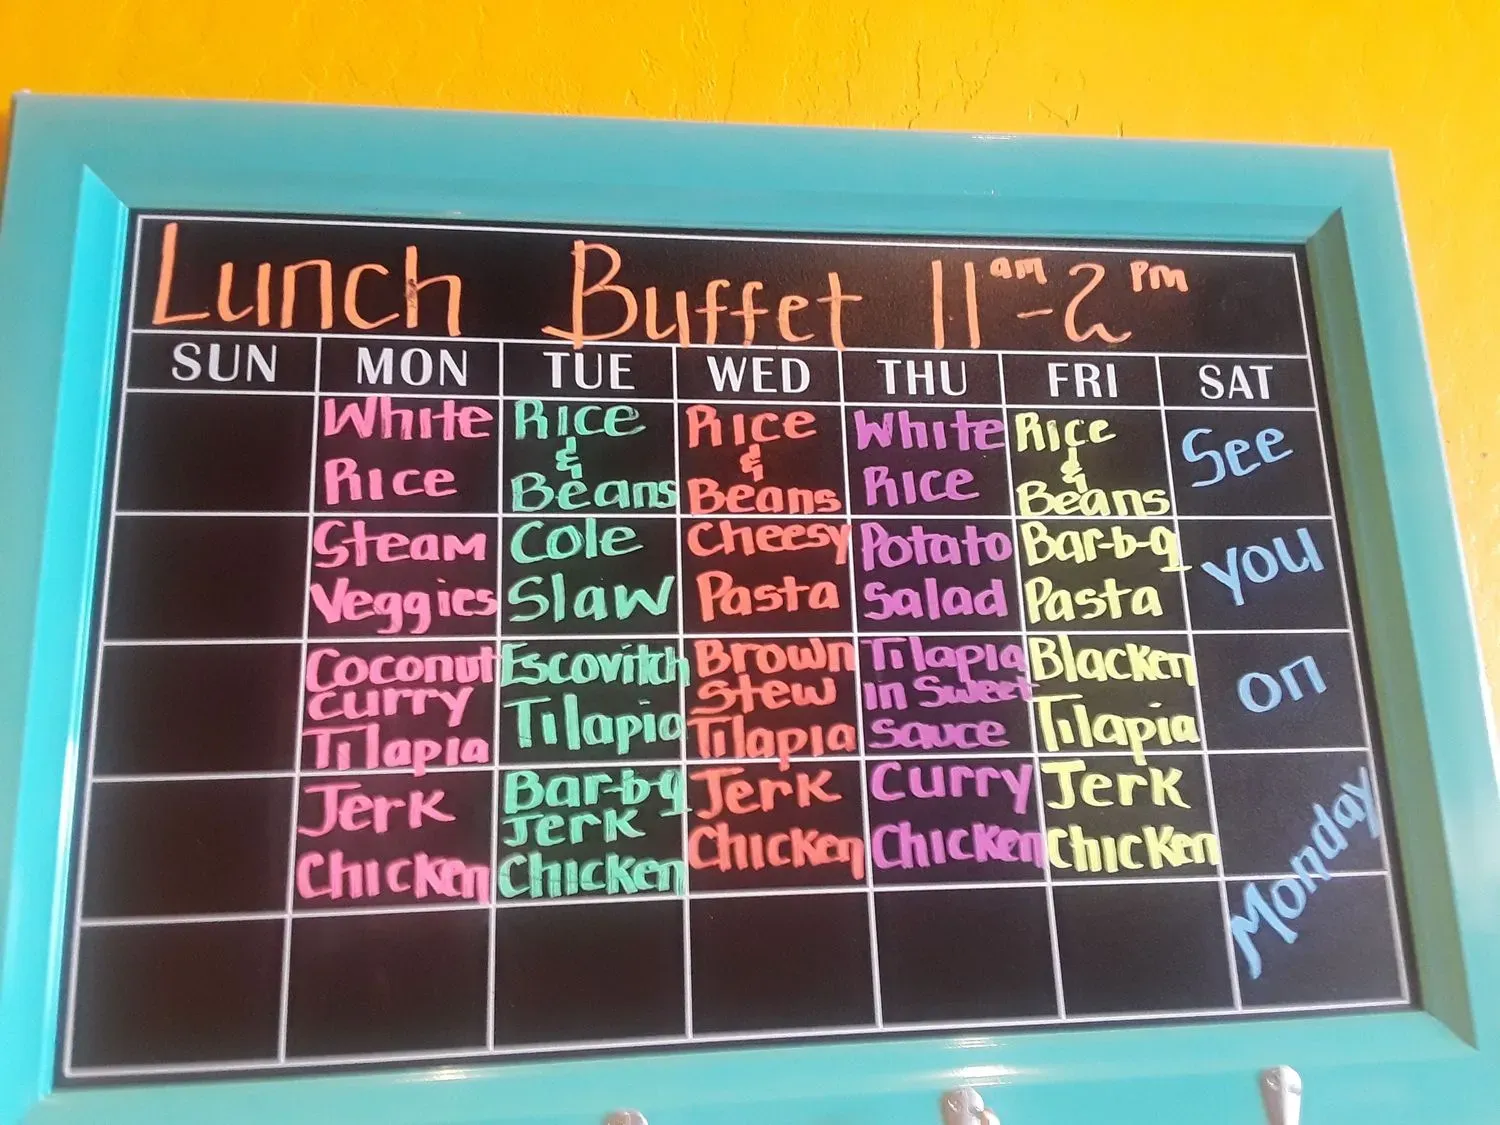 Lunch Buffet 11am-2pm
SUN MON TUE WED THU FRI SAT
White
Rice
Rice
&
Beans
Rice
&
Beans
White
Rice
Rice
&
Beans
See
Steam
Veggies
Cole
Slaw
Cheesy
Pasta
Potato
Salad
Bar-b-q
Pasta
you
Coconut
Curry
Tilapia
Escovitch
Tilapia
Brown
Stew
Tilapia
Tilapia
in Sweet
Sauce
Blacken
Tilapia
on
Jerk
Chicken
Bar-b-q
Jerk
Chicken
Jerk
Chicken
Curry
Chicken
Jerk
Chicken
Monday